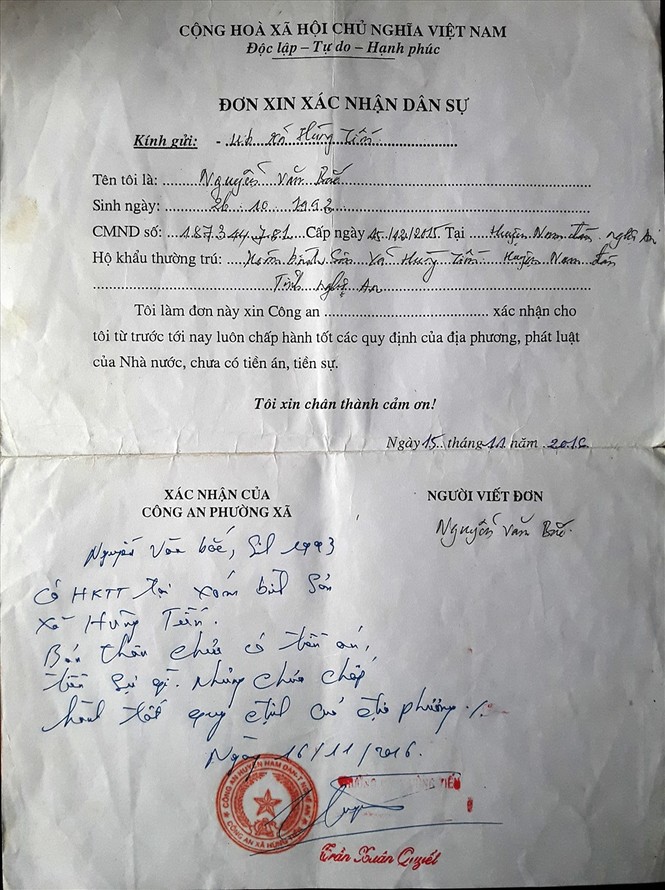 CỘNG HOÀ XÃ HỘI CHỦ NGHĨA VIỆT NAM
Độc lập – Tự do – Hạnh phúc
ĐƠN XIN XÁC NHẬN DÂN SỰ
Kính gửi: - Ub xã Hùng Tiến
Tên tôi là: Nguyễn Văn Bắc
Sinh ngày: 26 10 1992
CMND số: 187344781 Cấp ngày 15/12/2015 Tại Huyện Nam đàn. nghệ An
Hộ khẩu thường trú: Xóm bình Sơn Xã Hùng Tiến Huyện Nam đàn
Tỉnh nghệ An
Tôi làm đơn này xin Công an ........ xác nhận cho
tôi từ trước tới nay luôn chấp hành tốt các quy định của địa phương, phát luật
của Nhà nước, chưa có tiền án, tiền sự.
Tôi xin chân thành cảm ơn!
Ngày 15 tháng 11 năm 2016
XÁC NHẬN CỦA
CÔNG AN PHƯỜNG XÃ
NGƯỜI VIẾT ĐƠN
Nguyễn Văn Bắc
Nguyễn Văn Bắc, Sn 1993
Có HKTT tại xóm bình Sơn
Xã Hùng Tiến.
Bản thân chưa có tiền án,
tiền sự gì. Nhưng chưa chấp
hành tốt quy định của địa phương ./.
Ngày 16/11/2016.
CÔNG AN HUYỆN NAM ĐÀN-T NGHỆ AN
CÔNG AN XÃ HÙNG TIẾN
Trần Xuân Quyết